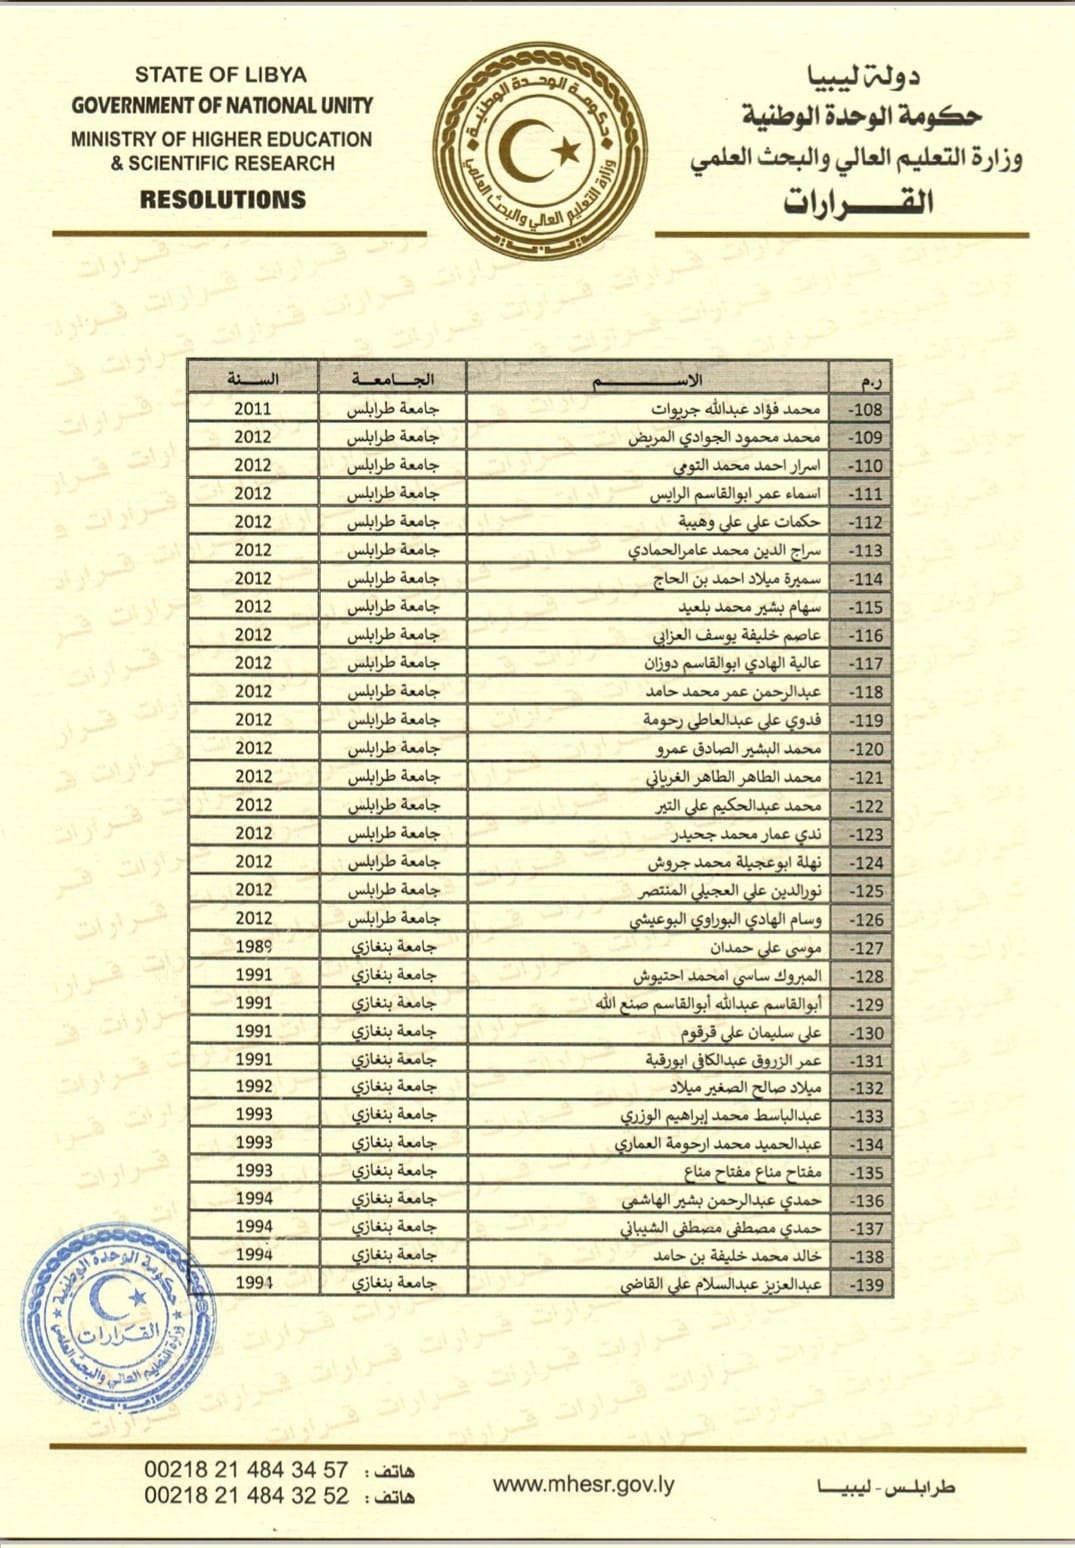 STATE OF LIBYA
GOVERNMENT OF NATIONAL UNITY
MINISTRY OF HIGHER EDUCATION
& SCIENTIFIC RESEARCH
RESOLUTIONS
حكومة الوحدة الوطنية
وزارة التعليم العالي والبحث العلمي
دولة ليبيا
حكومة الوحدة الوطنية
وزارة التعليم العالي والبحث العلمي
القـــرارات
ر.م الاســـــم الجـامعـة السـنة
108- محمد فؤاد عبدالله جريوات جامعة طرابلس 2011
109- محمد محمود الجوادي المريض جامعة طرابلس 2012
110- اسرار احمد محمد التومي جامعة طرابلس 2012
111- اسماء عمر ابوالقاسم الرايس جامعة طرابلس 2012
112- حكمات علي علي وهيبة جامعة طرابلس 2012
113- سراج الدين محمد عامرالحمادي جامعة طرابلس 2012
114- سميرة ميلاد احمد بن الحاج جامعة طرابلس 2012
115- سهام بشير محمد بلعيد جامعة طرابلس 2012
116- عاصم خليفة يوسف العزابي جامعة طرابلس 2012
117- عالية الهادي ابوالقاسم دوزان جامعة طرابلس 2012
118- عبدالرحمن عمر محمد حامد جامعة طرابلس 2012
119- فدوي علي عبدالعاطي رحومة جامعة طرابلس 2012
120- محمد البشير الصادق عمرو جامعة طرابلس 2012
121- محمد الطاهر الطاهر الغرياني جامعة طرابلس 2012
122- محمد عبدالحكيم علي التير جامعة طرابلس 2012
123- ندي عمار محمد جحيدر جامعة طرابلس 2012
124- نهلة ابوعجيلة محمد جروش جامعة طرابلس 2012
125- نورالدين علي العجيلي المنتصر جامعة طرابلس 2012
126- وسام الهادي البوراوي البوعيشي جامعة طرابلس 2012
127- موسى علي حمدان جامعة بنغازي 1989
128- المبروك ساسي امحمد احتيوش جامعة بنغازي 1991
129- أبوالقاسم عبدالله أبوالقاسم صنع الله جامعة بنغازي 1991
130- علي سليمان علي قرقوم جامعة بنغازي 1991
131- عمر الزروق عبدالكافي ابورقبة جامعة بنغازي 1991
132- ميلاد صالح الصغير ميلاد جامعة بنغازي 1992
133- عبدالباسط محمد إبراهيم الوزري جامعة بنغازي 1993
134- عبدالحميد محمد ارحومة العماري جامعة بنغازي 1993
135- مفتاح مناع مفتاح مناع جامعة بنغازي 1993
136- حمدي عبدالرحمن بشير الهاشمي جامعة بنغازي 1994
137- حمدي مصطفى مصطفى الشيباني جامعة بنغازي 1994
138- خالد محمد خليفة بن حامد جامعة بنغازي 1994
139- عبدالعزيز عبدالسلام علي القاضي جامعة بنغازي 1994
حكومة الوحدة الوطنية
القرارات
وزارة التعليم العالي والبحث العلمي
هاتف : 00218 21 484 34 57
هاتف : 00218 21 484 32 52
www.mhesr.gov.ly
طرابلس - ليبيا